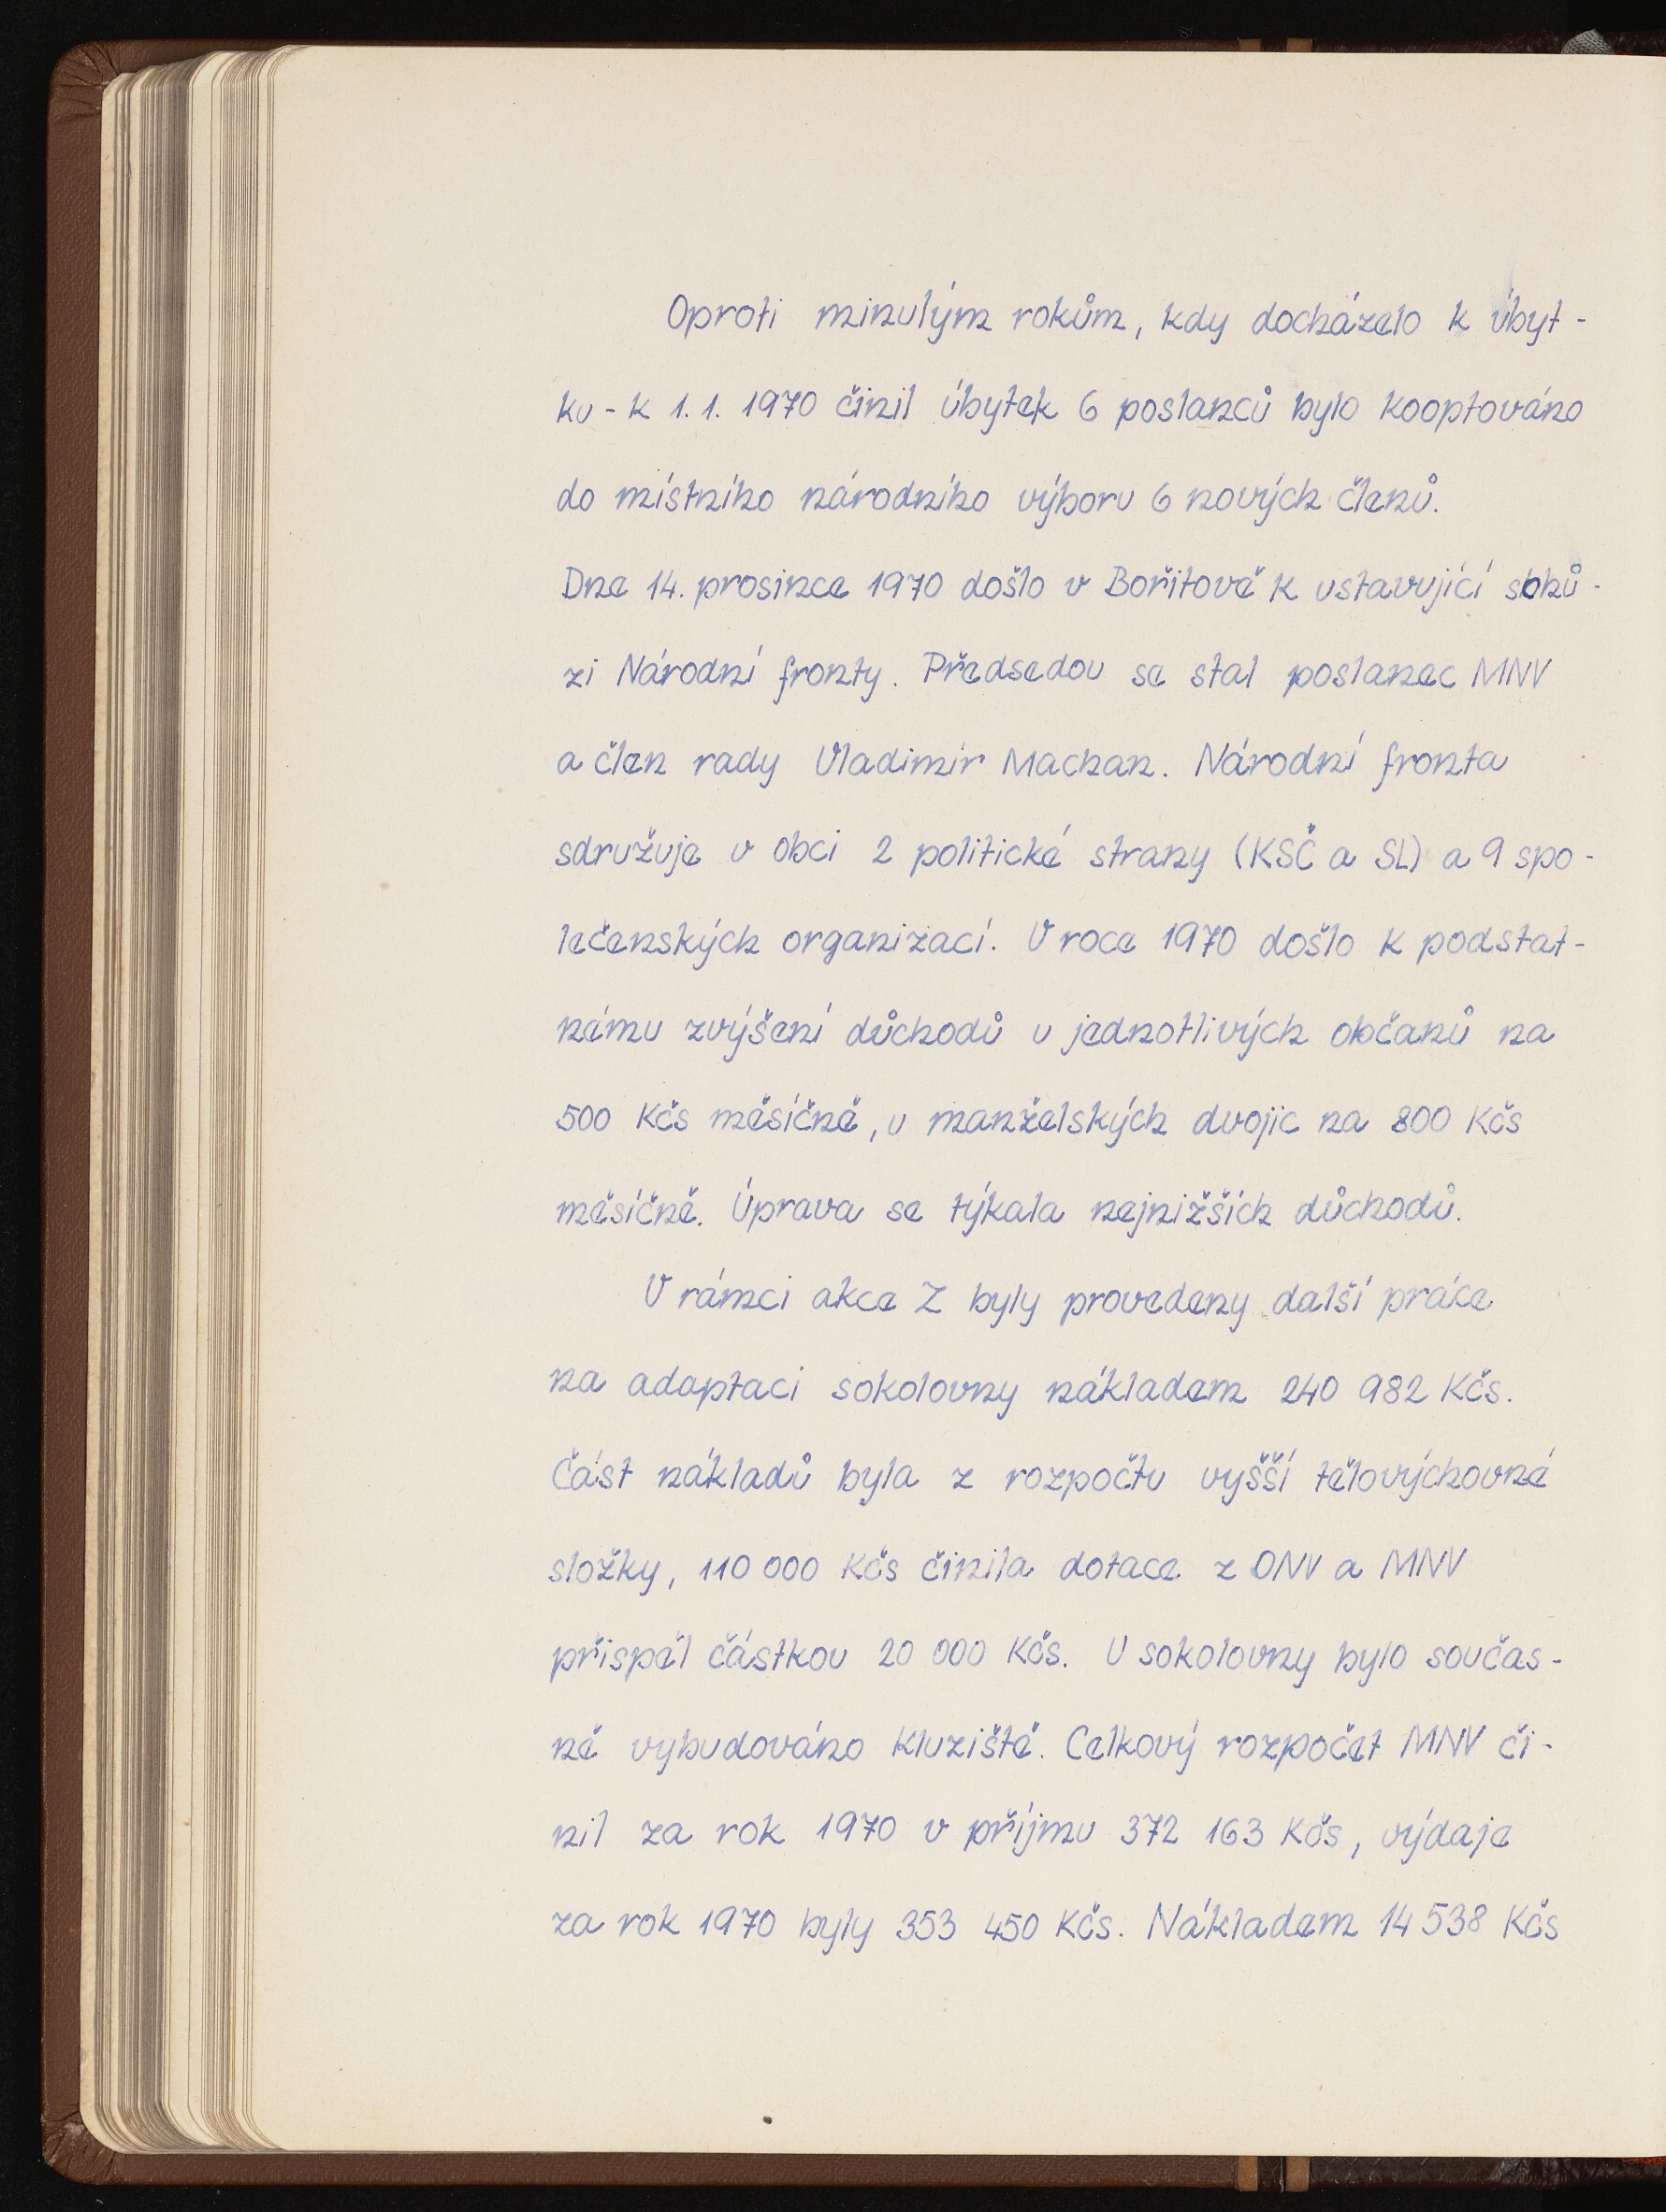 Oproti minulým rokům, kdy docházelo k úbyt-
ku - k 1. 1. 1970 činil úbytek 6 poslanců bylo kooptováno
do místního národního výboru 6 nových členů.
Dne 14. prosince 1970 došlo v Bořitově k ustavující schů-
zi Národní fronty. Předsedou se stal poslanec MNV
a člen rady Vladimír Machan. Národní fronta
sdružuje v obci 2 politické strany (KSČ a SL) a 9 spo-
lečenských organizací. V roce 1970 došlo k podstat-
nému zvýšení důchodů u jednotlivých občanů na
500 Kčs měsíčně, u manželských dvojic na 800 Kčs
měsíčně. Úprava se týkala nejnižších důchodů.
V rámci akce Z byly provedeny další práce
na adaptaci sokolovny nákladem 240 982 Kčs.
Část nákladů byla z rozpočtu vyšší tělovýchovné
složky, 110 000 Kčs činila dotace z ONV a MNV
přispěl částkou 20 000 Kčs. U sokolovny bylo součas-
ně vybudováno kluziště. Celkový rozpočet MNV či-
nil za rok 1970 v příjmu 372 163 Kčs, výdaje
za rok 1970 byly 353 450 Kčs. Nákladem 14 538 Kčs